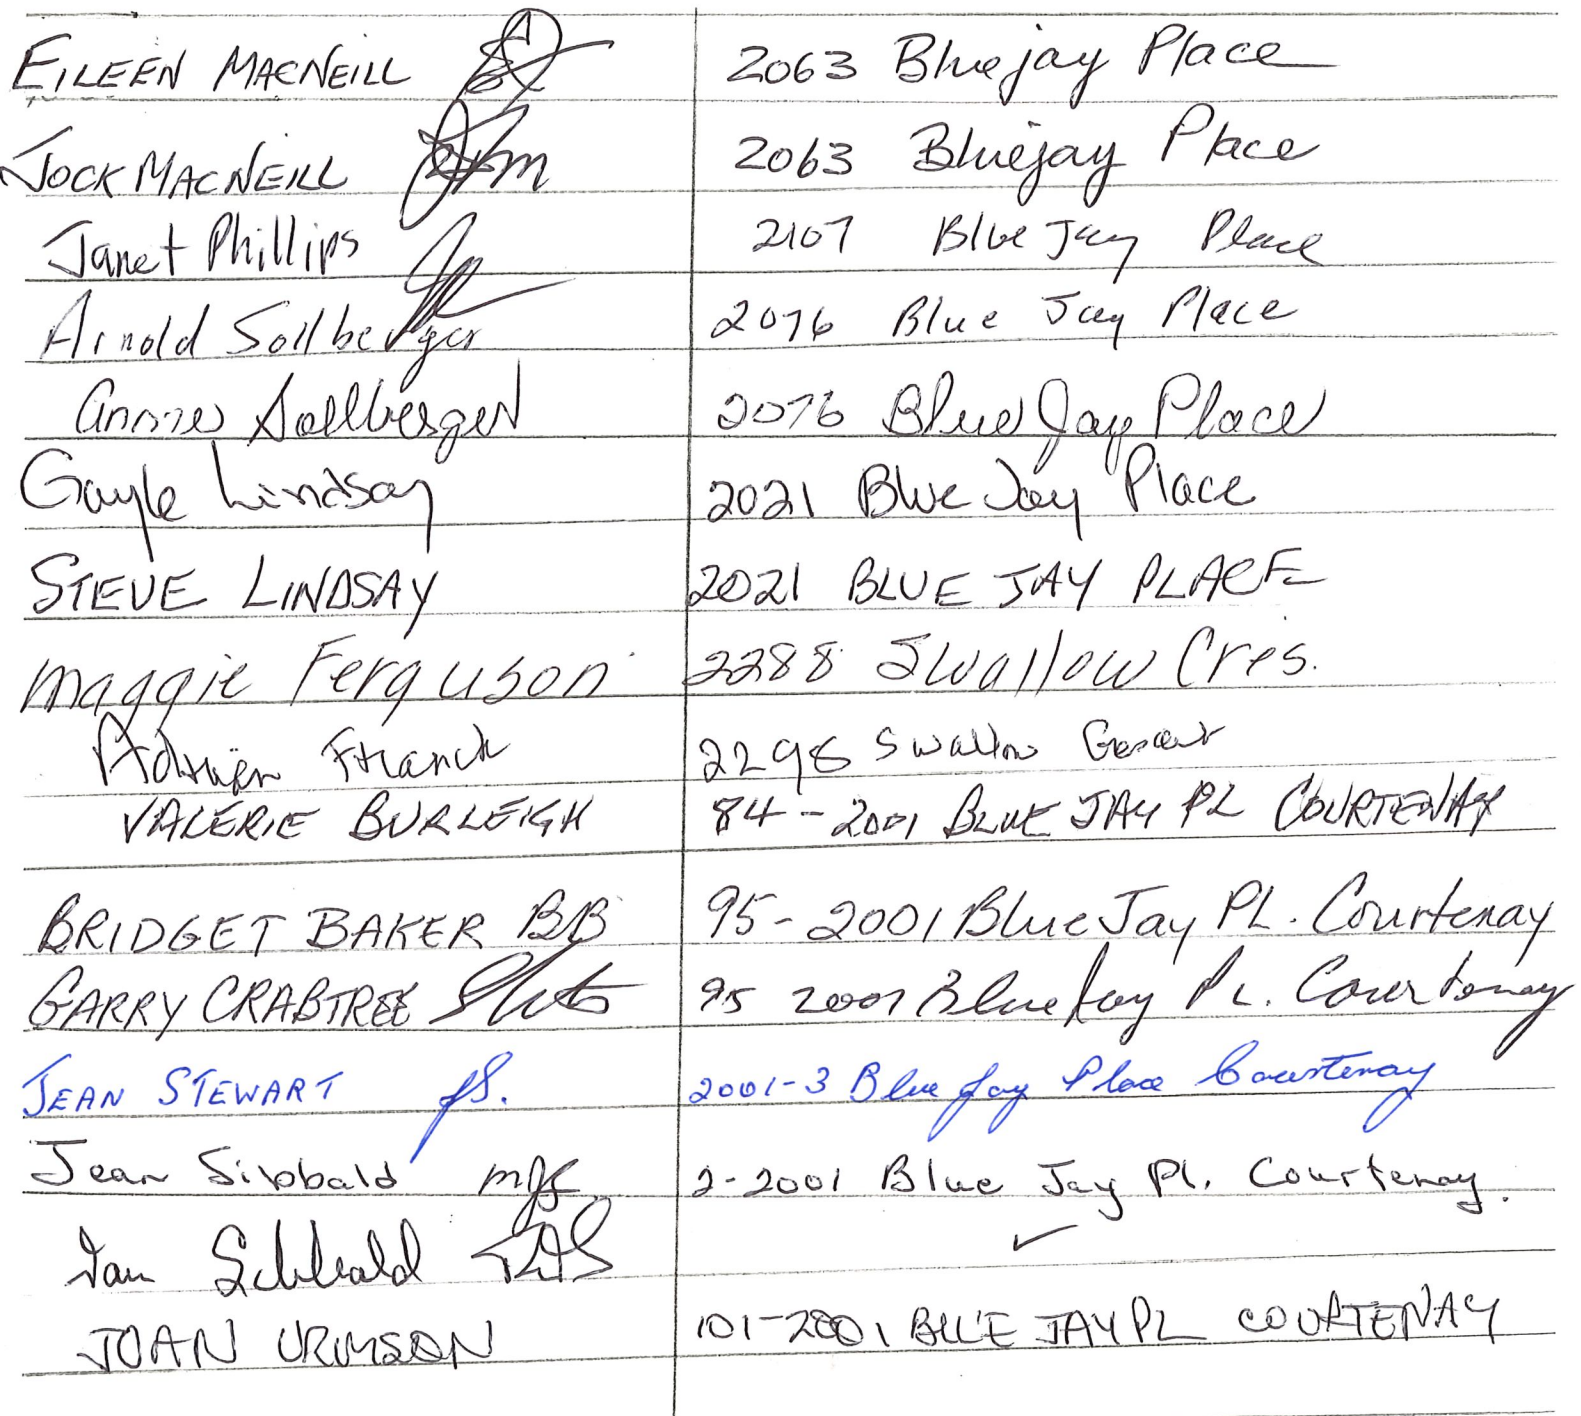 EILEEN MACNEILL 2063 Bluejay Place
JOCK MACNEILL 2063 Bluejay Place
Janet Phillips 2107 Blue Jay Place
Arnold Sollberger 2076 Blue Jay Place
Annie Sollberger 2076 Blue Jay Place
Gayle Lindsay 2021 Blue Jay Place
STEVE LINDSAY 2021 BLUE JAY PLACE
Maggie Ferguson 2288 Swallow Cres.
Franck 2298 Swallow Crescent
VALERIE BURLEIGH 84-2001 BLUE JAY PL COURTENAY
BRIDGET BAKER BB 95-2001 Blue Jay PL. Courtenay
GARRY CRABTREE 95 2001 Blue Jay PL. Courtenay
JEAN STEWART JS. 2001-3 Blue Jay Place Courtenay
Jean Sibbald 2-2001 Blue Jay Pl. Courtenay.
Ian Sibbald ✓
JOAN URMSON 101-2001 BLUE JAY PL COURTENAY